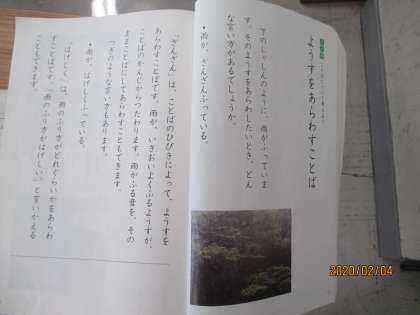 ようすをあらわすことば
下のしゃしんのように、雨がふっていま
す。そのようすをあらわしたいとき、どん
な言い方があるでしょうか。
●雨が、ざんざんふっている。
「ざんざん」は、ことばのひびきによって、ようすを
あらわすことばです。雨が、いきおいよくふるようすが、
ことばのかんじからつたわります。雨がふる音を、その
ままことばにしてあらわすこともできます。
つぎのような言い方もあります。
●雨が、はげしくふっている。
「はげしく」は、雨のふり方がどれぐらいかをあらわ
すことばです。「雨のふり方がはげしい。」と言いかえる
こともできます。
2020/02/04